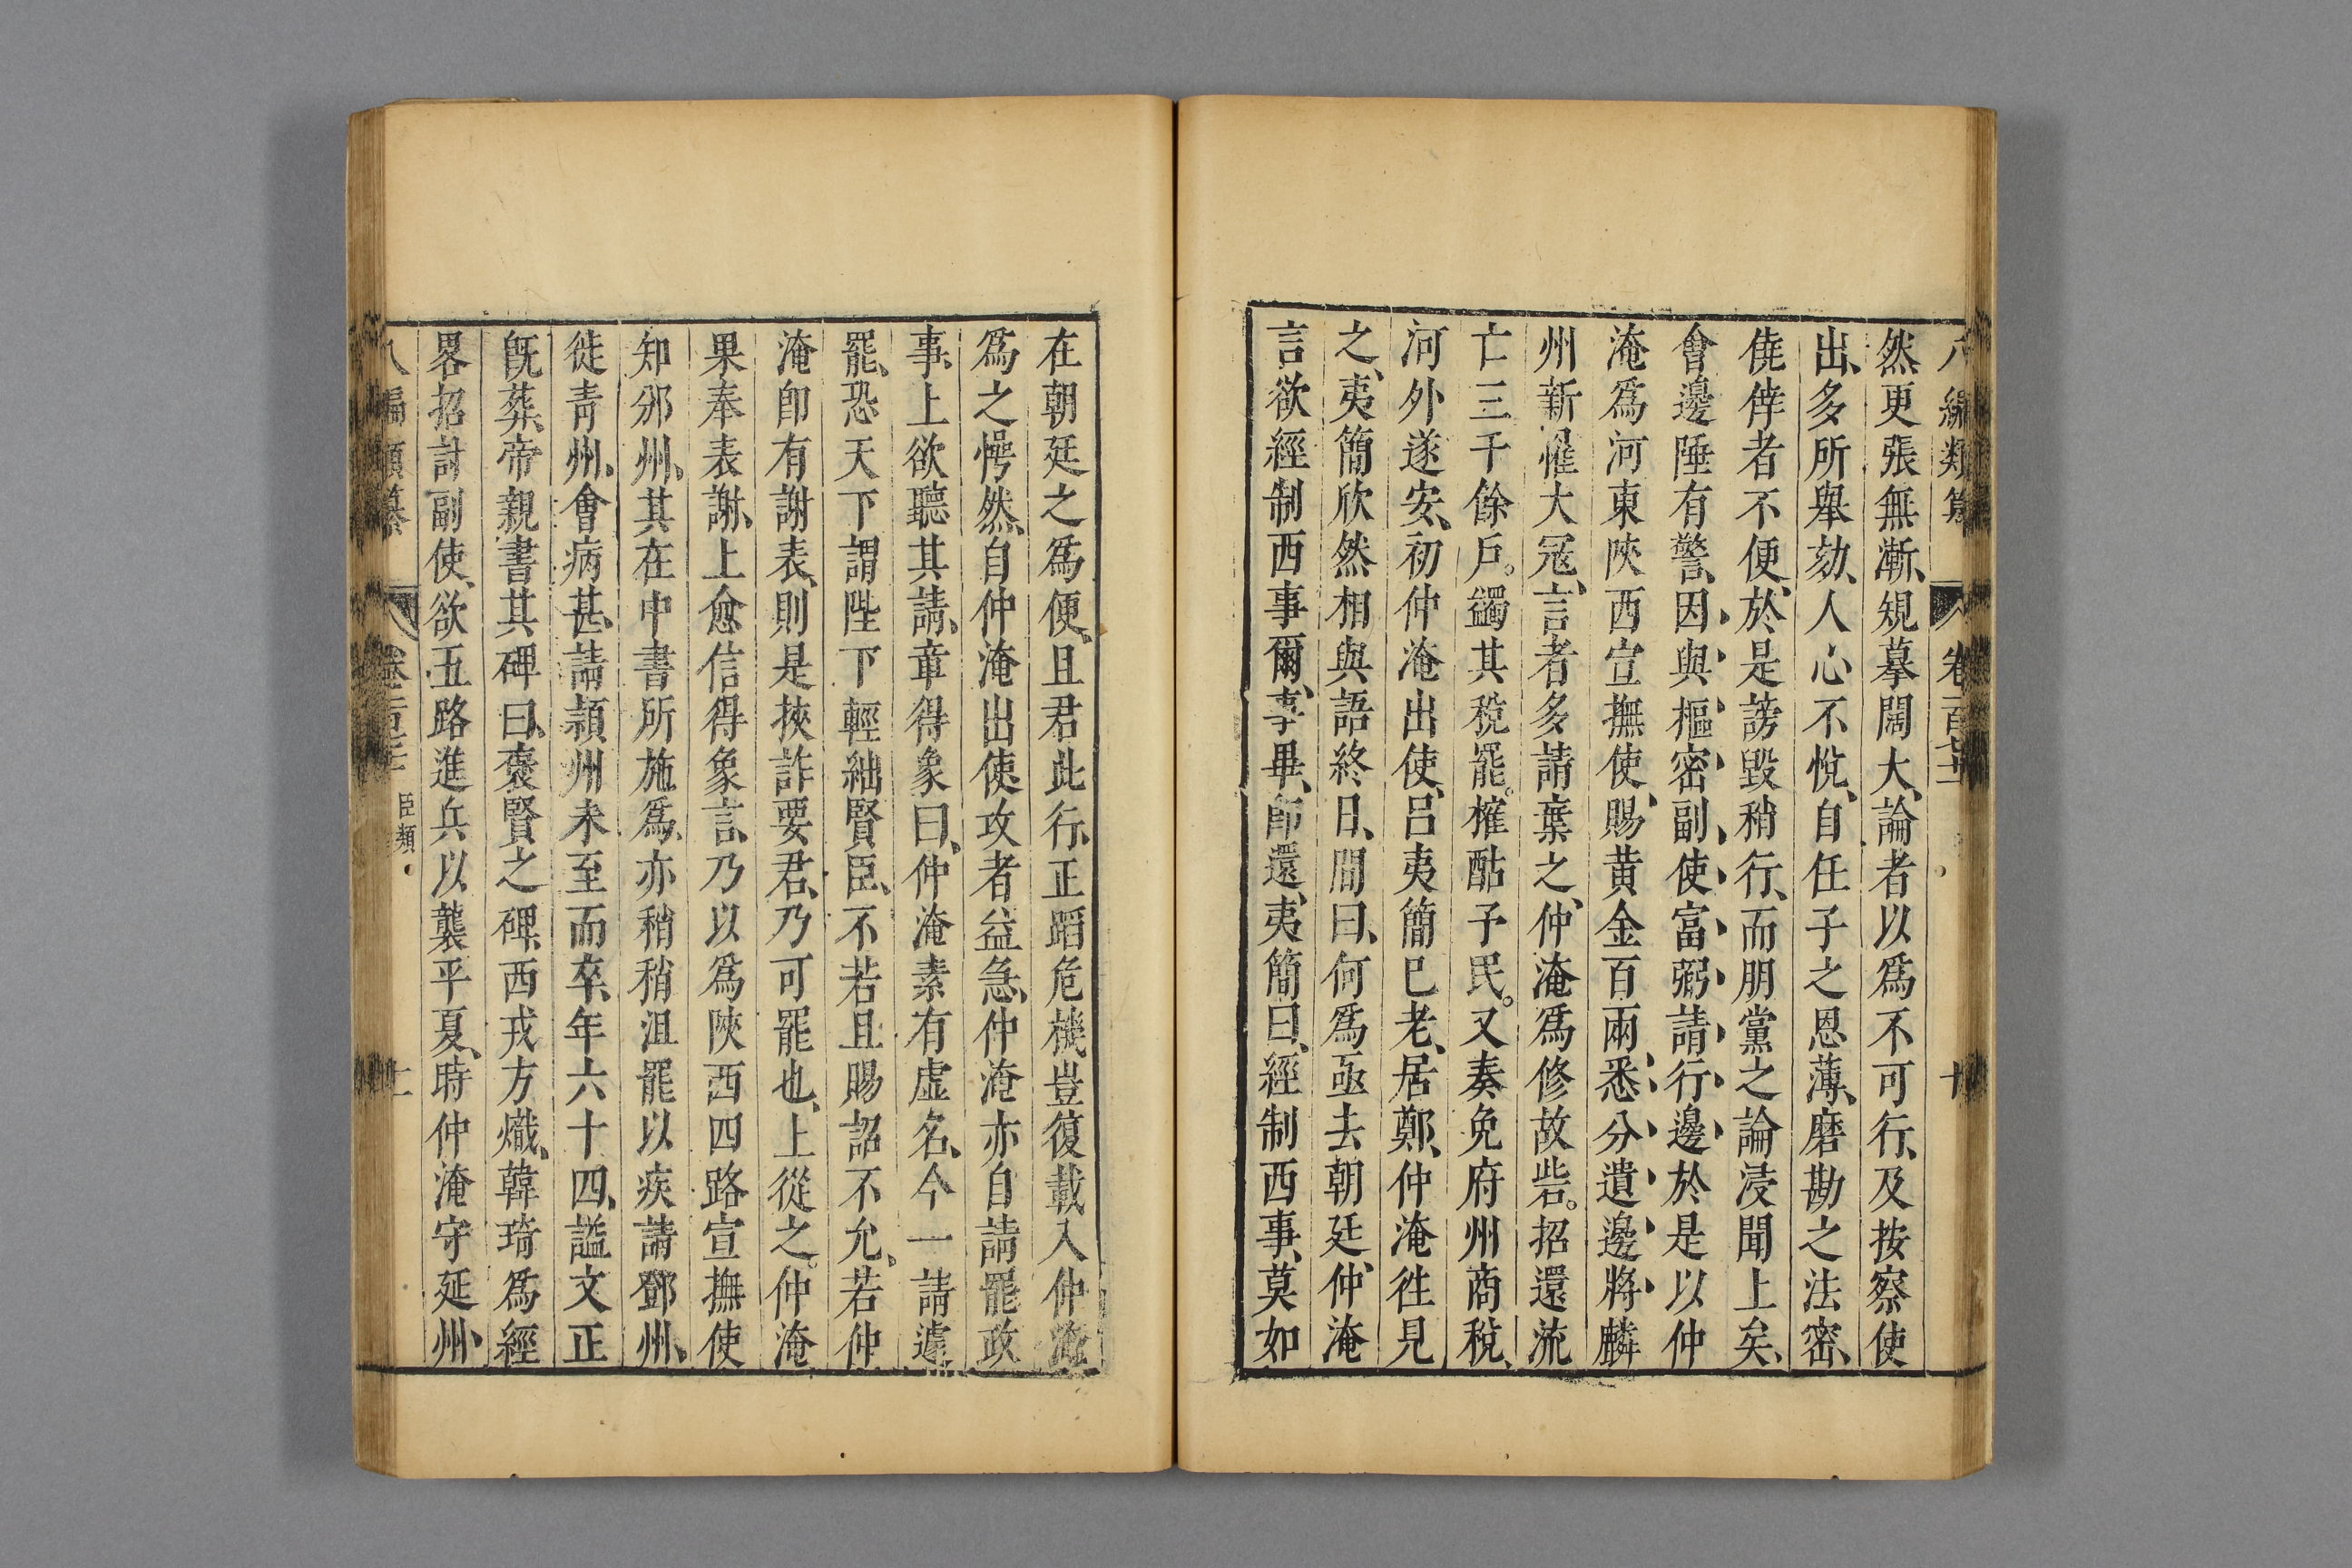 八編類篡 卷一百 十
然更張無漸、規摹闊大、論者以爲不可行、及按察使
出、多所舉劾、人心不悅、自任子之恩薄、磨勘之法密、
僥倖者不便、於是謗毀稍行、而朋黨之論浸聞上矣、
會邊陲有警、因與樞密副使富弼請行邊於是以仲
淹爲河東陝西宣撫使、賜黄金百兩、悉分遺邊將、麟
州新罹大冦、言者多請棄之、仲淹爲修故砦。招還流
亡三千餘戶。蠲其稅罷。榷酤予民。又奏免府州商稅、
河外遂安、初仲淹出使、呂夷簡已老、居鄭、仲淹徃見
之、夷簡欣然相與語終日、間曰、何爲亟去朝廷、仲淹
言欲經制西事爾、事畢、卽還、夷簡曰、經制西事、莫如
在朝廷之爲便、且君此行、正蹈危機豈復載入仲淹
爲之愕然、自仲淹出使、攻者益急、仲淹亦自請罷政
事、上欲聽其請、章得象曰、仲淹素有虛名、今一請遽
罷、恐天下謂陛下輕絀賢臣、不若且賜詔不允、若仲
淹卽有謝表、則是挾詐要君、乃可罷也、上從之。仲淹
果奉表謝、上愈信得象言、乃以爲陝西四路宣撫使
知邠州、其在中書所施爲、亦稍稍沮罷以疾請鄧州、
徙青州、會病甚、請頴州未至而卒、年六十四、謚文正
旣葬、帝親書其碑曰、褒賢之碑、西戎方熾、韓琦爲經
畧招討副使、欲五路進兵以襲平夏、時仲淹守延州、
八編類纂 卷 臣類 十一